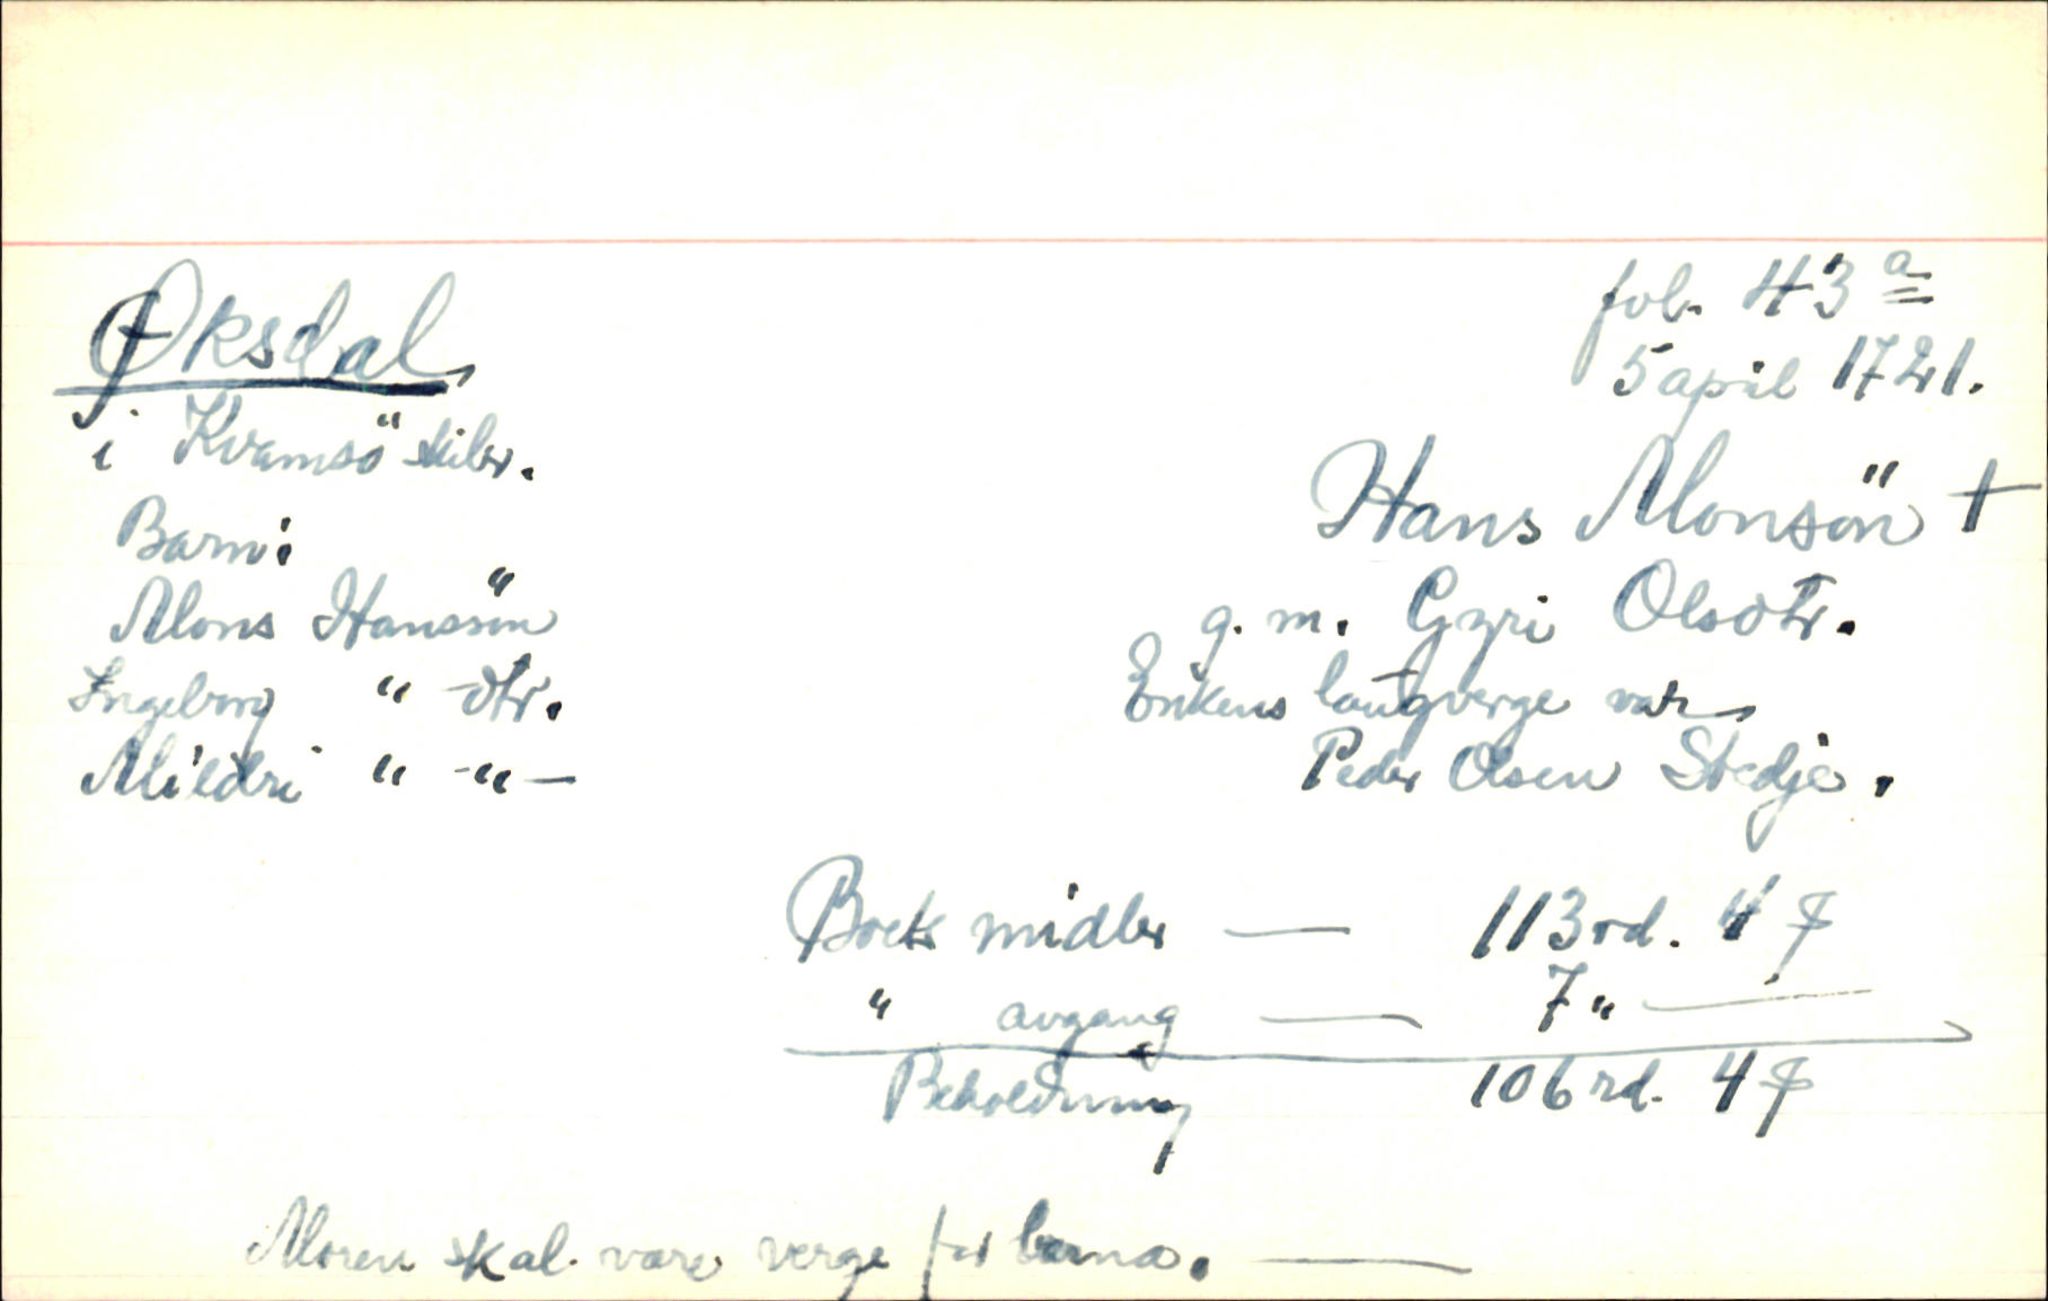 Øksdal
i Kvamsö skibr.
Barn:
Mons Hanssön
Ingeborg " dtr.
Mildri " -"-
fol. 43 a
5 april 1721.
Hans Monsön +
g. m. Gyri Olsdtr.
Enkens laugverge var
Peder Olsen Stedje.
Boets midler — 113 rd. 4 ꞵ
" avgang — 7 " —
Beholdning 106 rd. 4 ꞵ
Moren skal være verge for barna. —